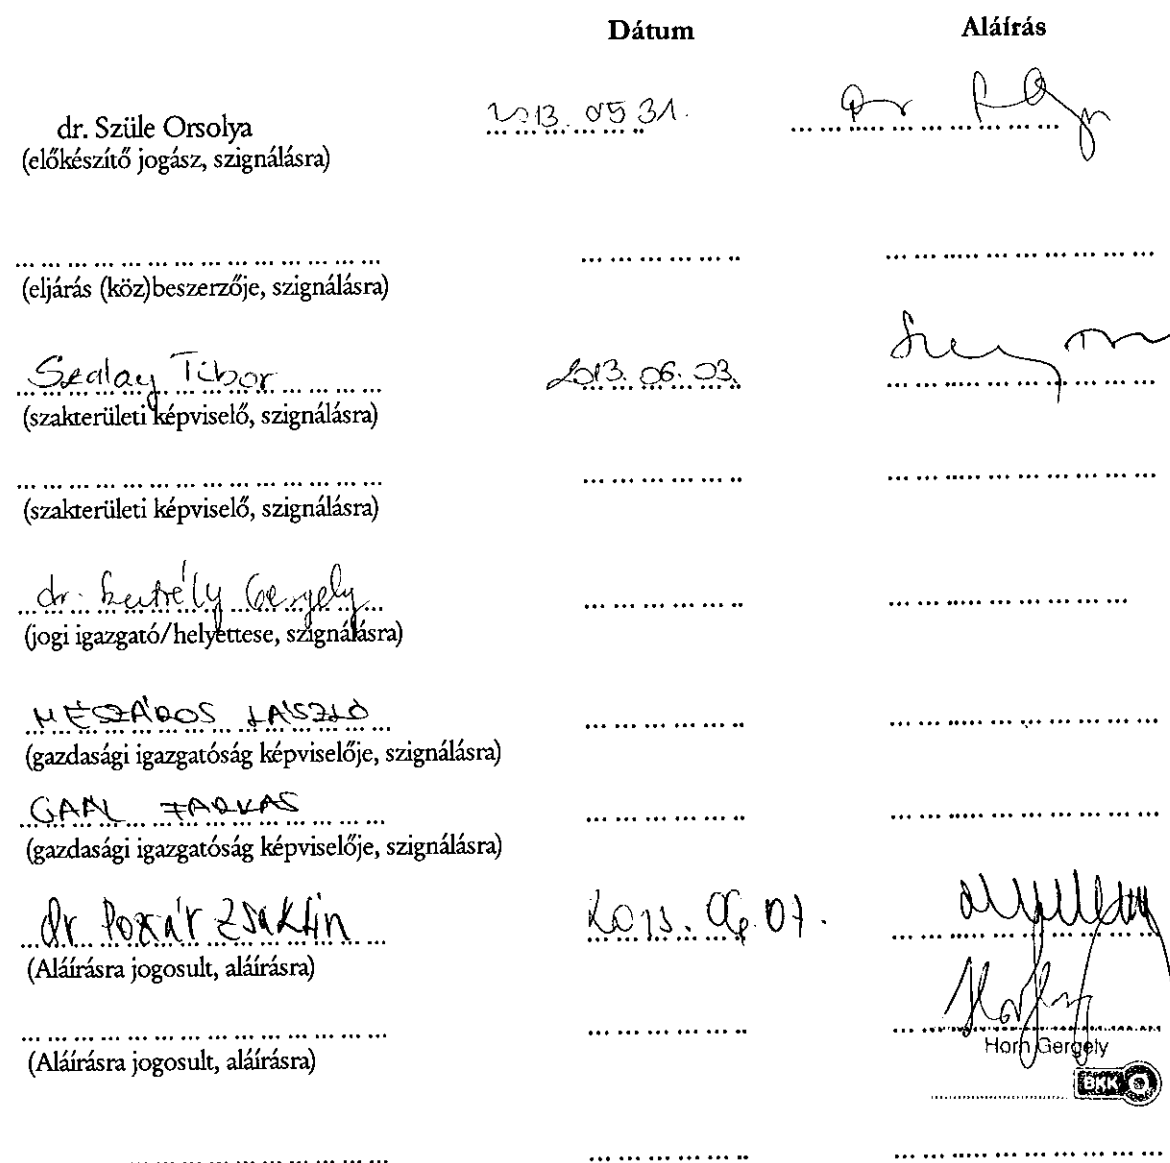 Dátum Aláírás
dr. Szüle Orsolya 2013. 05 31.
(előkészítő jogász, szignálásra)
(eljárás (köz)beszerzője, szignálásra)
Szalay Tibor 2013. 06. 03.
(szakterületi képviselő, szignálásra)
(szakterületi képviselő, szignálásra)
dr. Gergely
(jogi igazgató/helyettese, szignálásra)
MÉSZÁROS LÁSZLÓ
(gazdasági igazgatóság képviselője, szignálásra)
GAÁL FARKAS
(gazdasági igazgatóság képviselője, szignálásra)
dr Pozsár Zsaklin 2013. 06. 07.
(Aláírásra jogosult, aláírásra)
Horn Gergely
(Aláírásra jogosult, aláírásra)
BKK